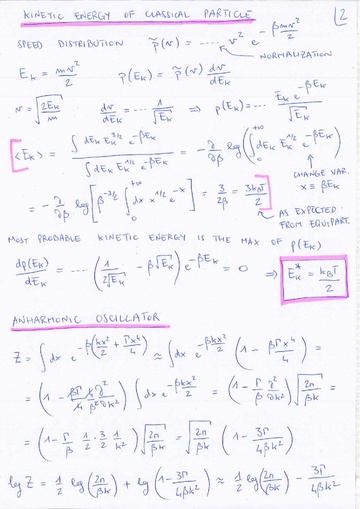 KINETIC ENERGY OF CLASSICAL PARTICLE
2
SPEED DISTRIBUTION p̃(v) = ..... v² e^{-β mv²/2}
NORMALIZATION
E_k = mv²/2 p(E_k) = p̃(v) dv/dE_k
v = √(2E_k/m) dv/dE_k = ... 1/√E_k ⇒ p(E_k) = ... E_k e^{-βE_k}/√E_k
⟨E_k⟩ = ∫ dE_k E_k^{3/2} e^{-βE_k} / ∫ dE_k E_k^{1/2} e^{-βE_k} = - ∂/∂β log( ∫_0^{+∞} dE_k E_k^{1/2} e^{-βE_k} )
CHANGE VAR. x ≡ βE_k
= - ∂/∂β log[ β^{-3/2} ∫_0^{+∞} dx x^{1/2} e^{-x} ] = 3/2β = 3k_BT/2
AS EXPECTED FROM EQUIPART.
MOST PROBABLE KINETIC ENERGY IS THE MAX OF p(E_k)
dp(E_k)/dE_k = .... ( 1/2√E_k - β√E_k ) e^{-βE_k} = 0 ⇒ E_k* = k_BT/2
ANHARMONIC OSCILLATOR
Z = ∫ dx e^{-β(kx²/2 + Γx⁴/4)} ≈ ∫ dx e^{-βkx²/2} ( 1 - βΓx⁴/4 ) =
= ( 1 - βΓ/4 4∂²/β²∂k² ) ∫ dx e^{-βkx²/2} = ( 1 - Γ/β ∂²/∂k² ) √(2π/βk) =
= ( 1 - Γ/β 1/2 · 3/2 1/k² ) √(2π/βk) = √(2π/βk) ( 1 - 3Γ/4βk² )
log Z = 1/2 log(2π/βk) + log( 1 - 3Γ/4βk² ) ≈ 1/2 log(2π/βk) - 3Γ/4βk²